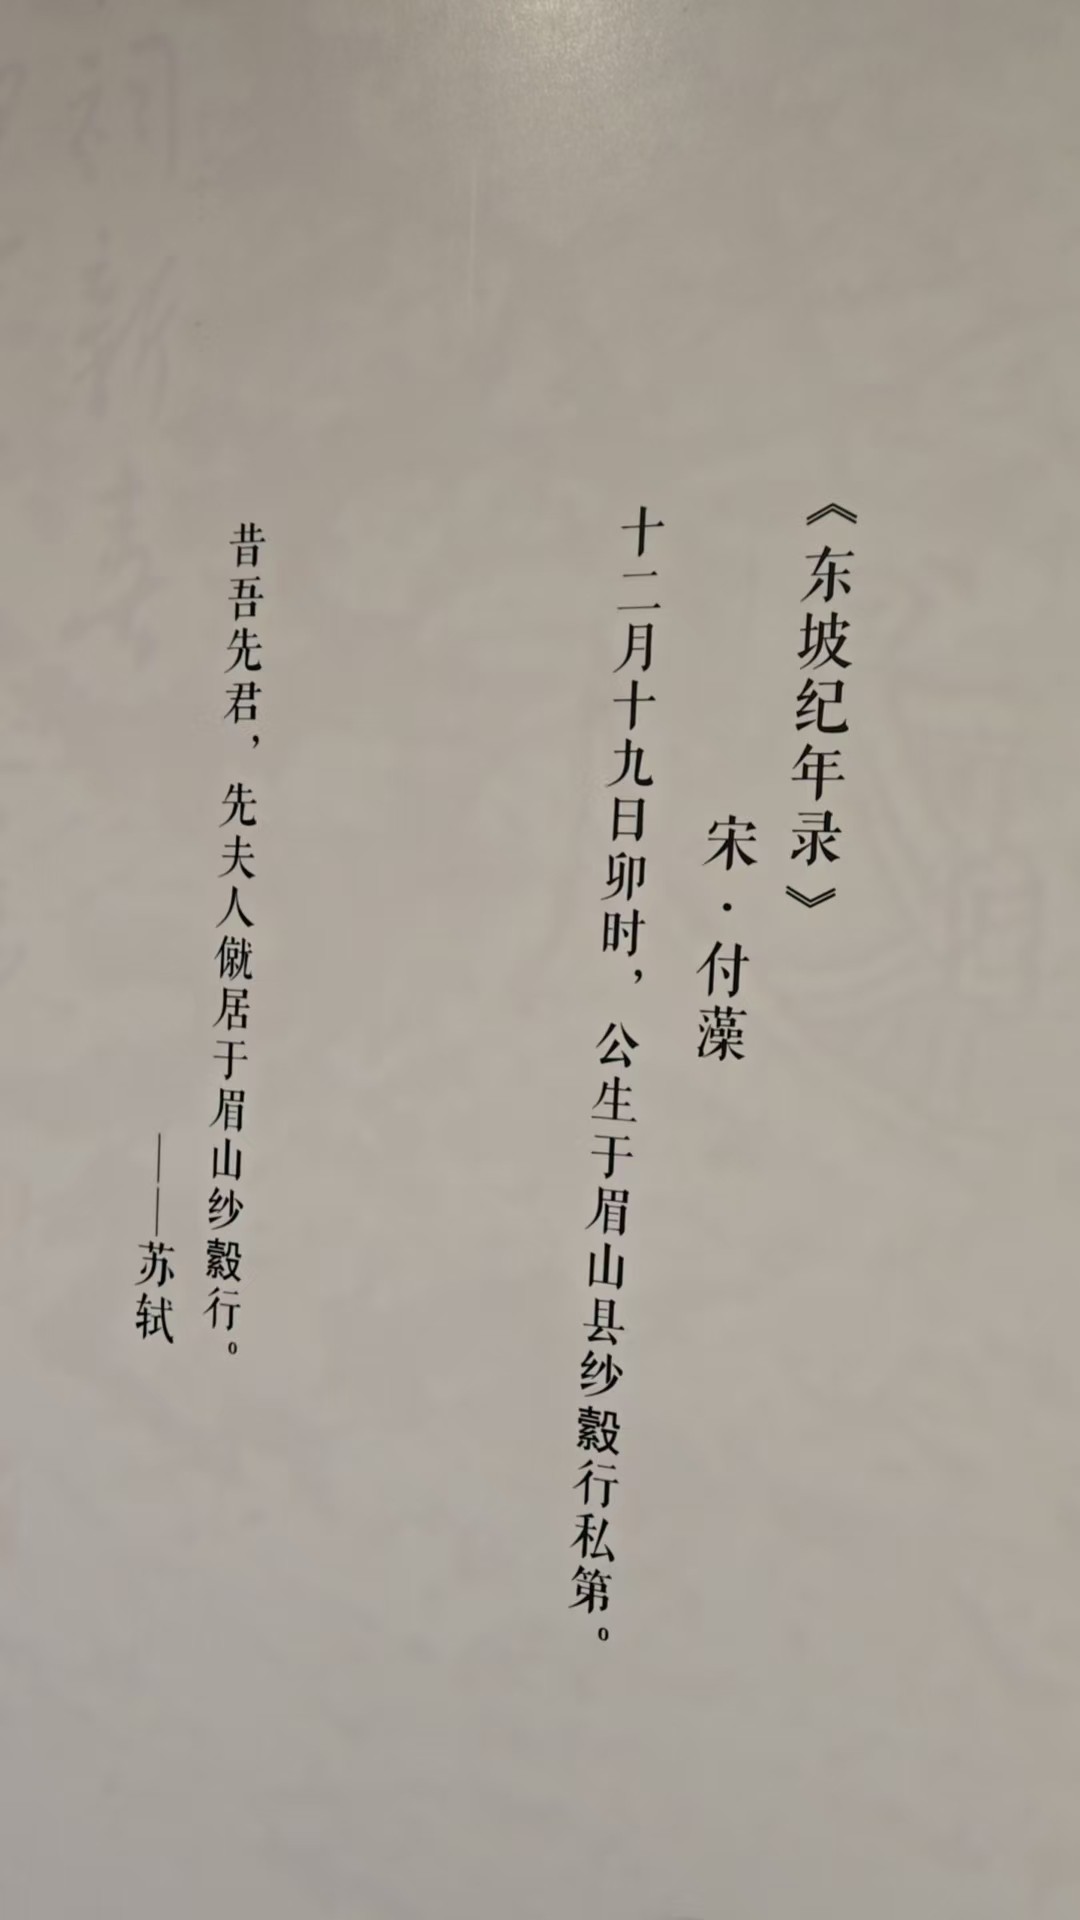 《东坡纪年录》
宋·付藻
十二月十九日卯时，公生于眉山县纱縠行私第。
昔吾先君，先夫人僦居于眉山纱縠行。
——苏轼